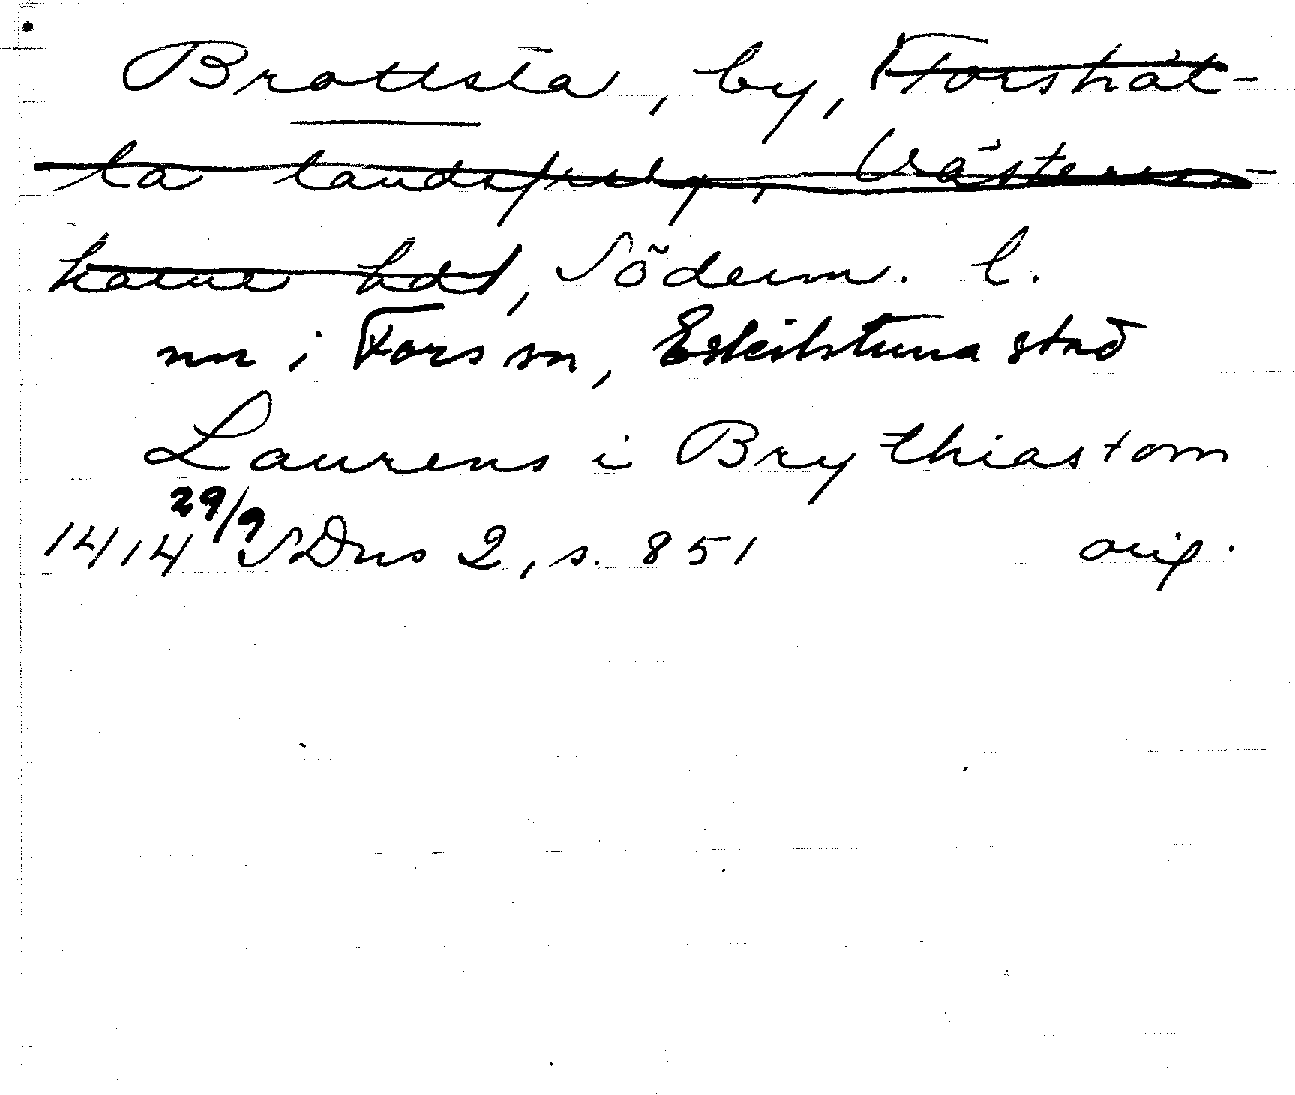 Brottsta, by, Forshäl-
la landsförs., Västerrek-
harne hd, Söderm. l.
nu i Fors sn, Eskilstuna stad
Laurens i Brythiastom
1414 29/9 SDns 2, s. 851 orig.